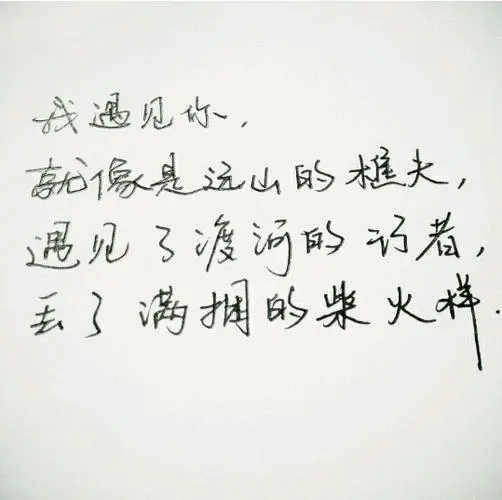 我遇见你，
就像是远山的樵夫，
遇见了渡河的讨者，
丢了满捆的柴火样.